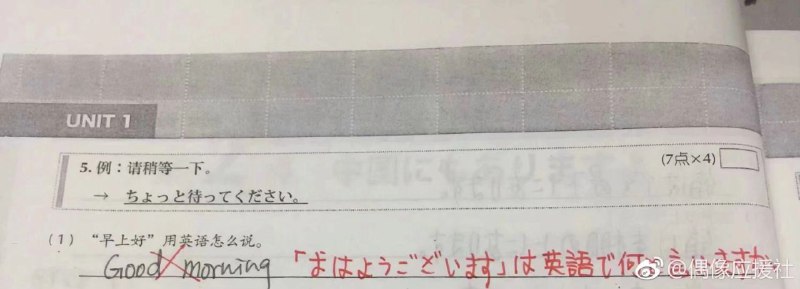 UNIT 1
5. 例：请稍等一下。 (7点×4)
→ ちょっと待ってください。
(1) “早上好”用英语怎么说。
Good morning 「おはようございます」は英語で何
@偶像应援社